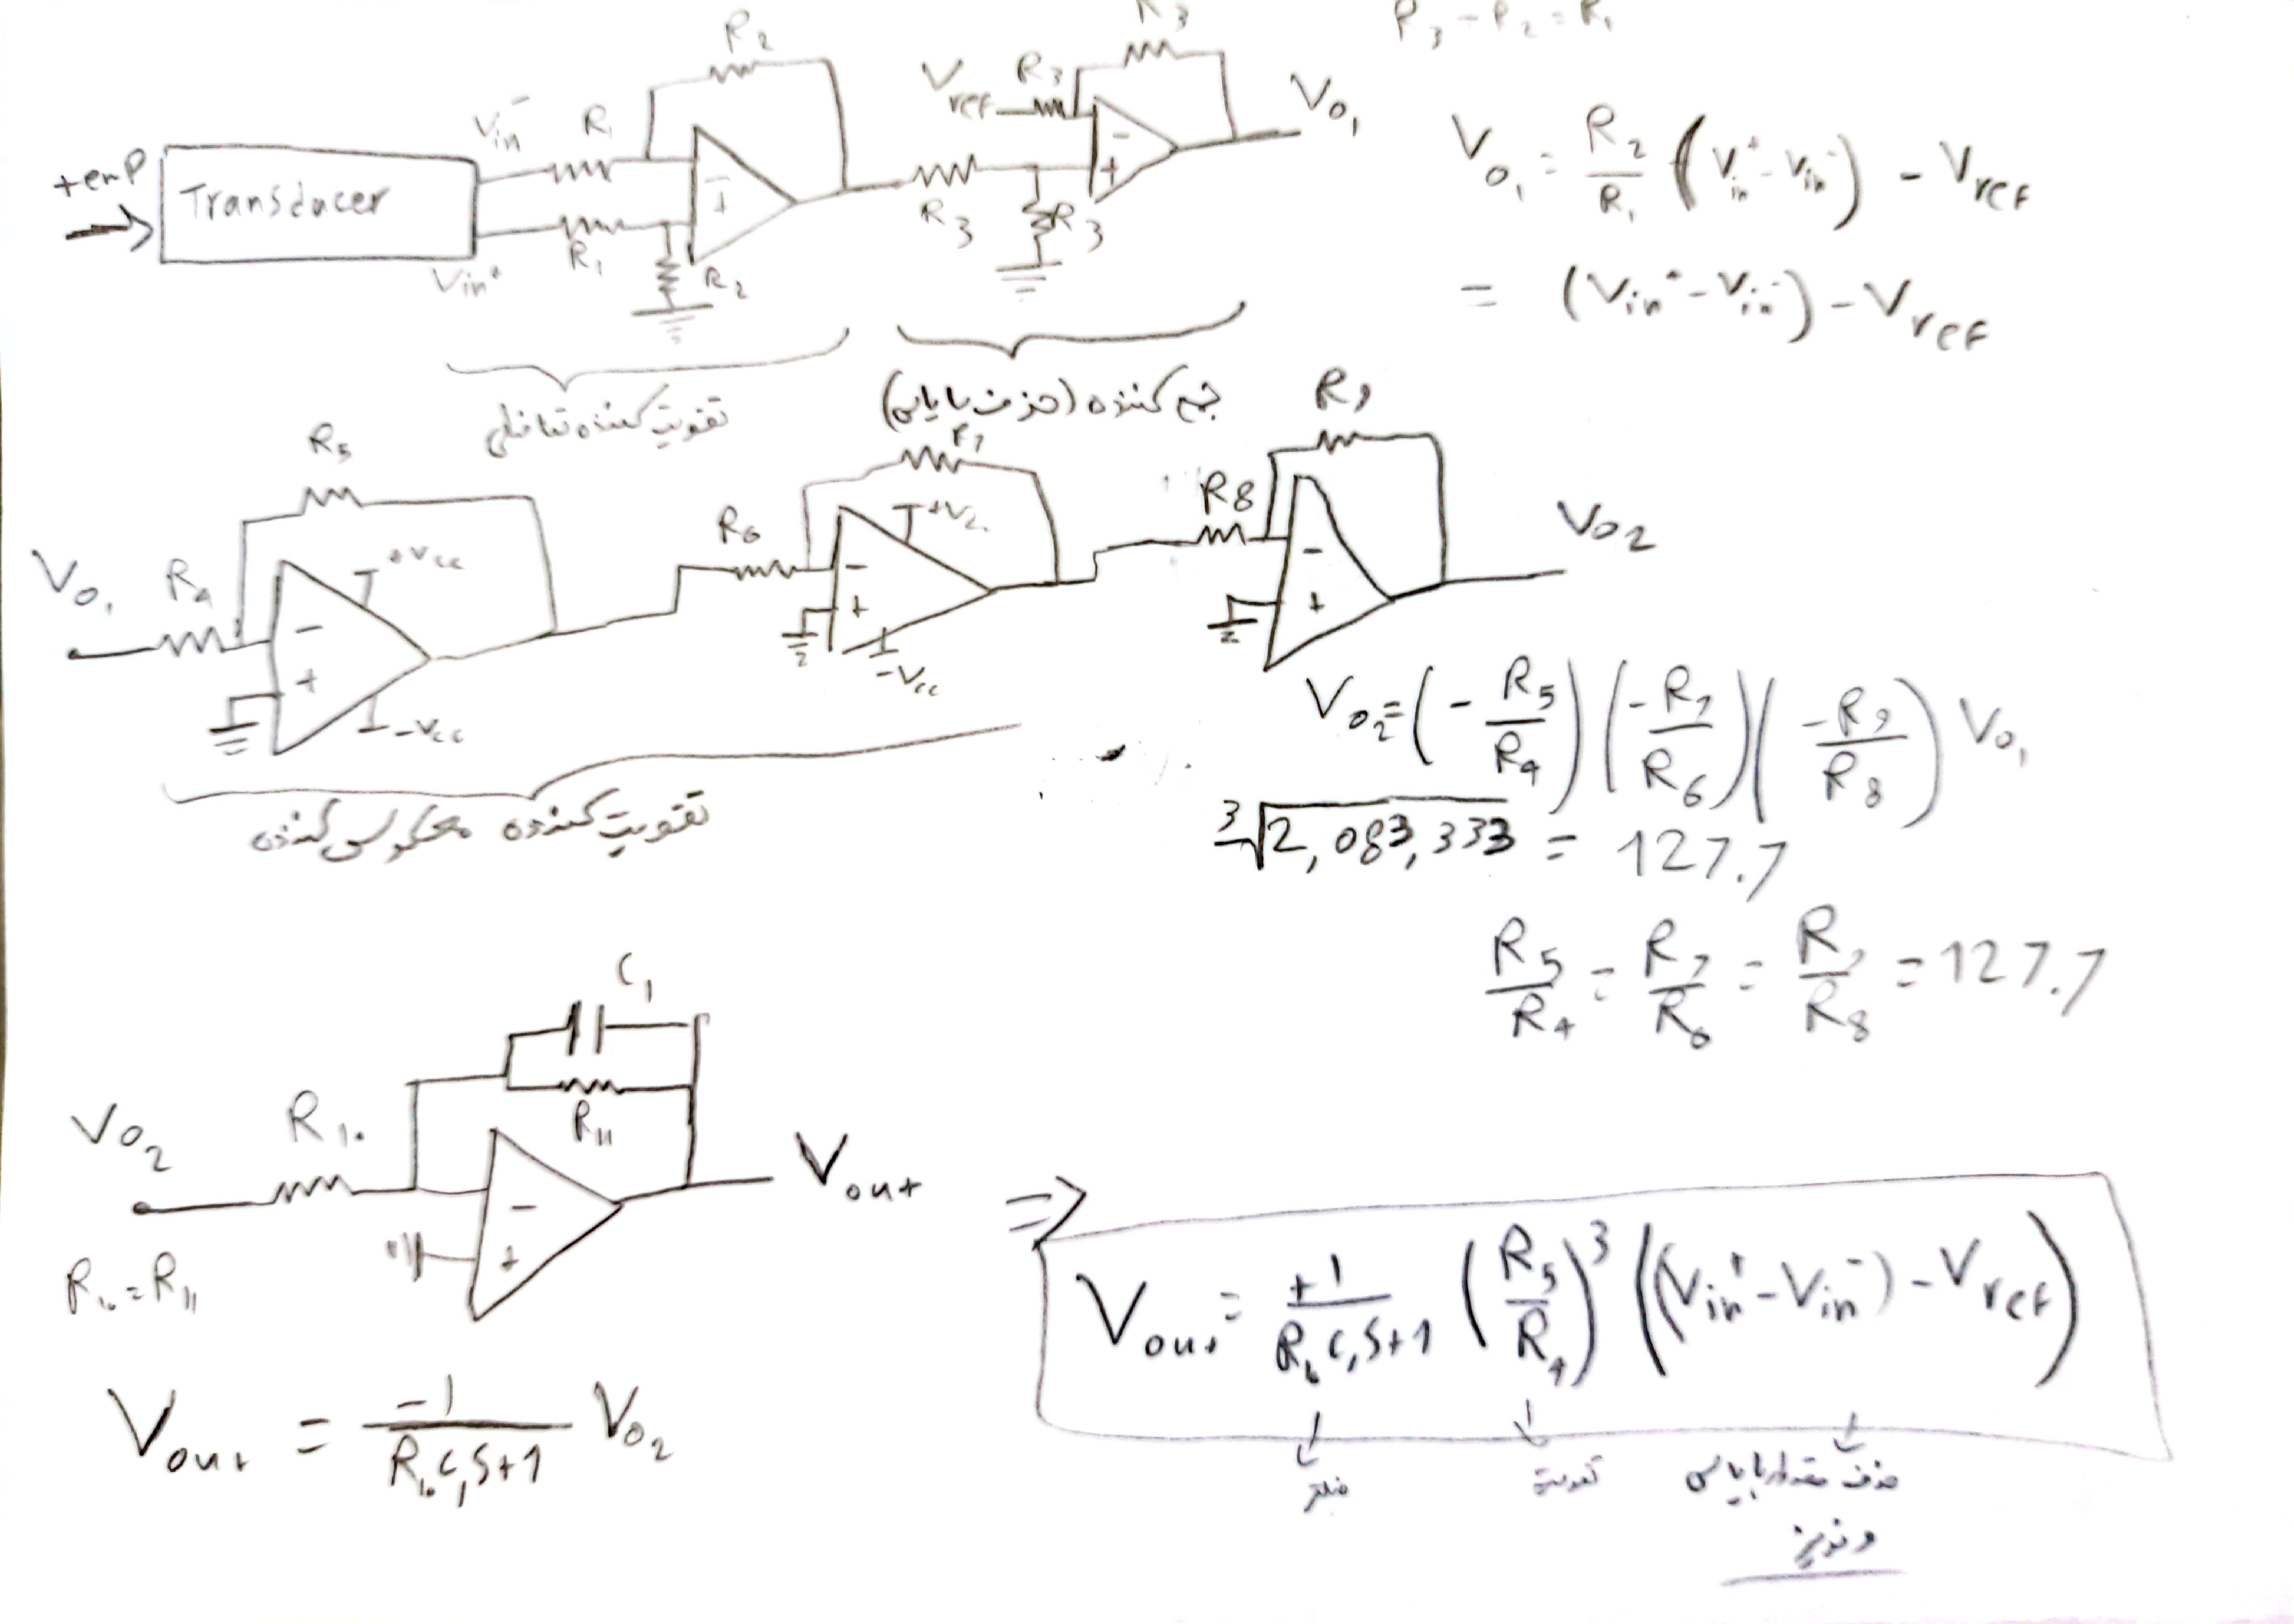 R3
P3 - P2 = R1
R2
Vref R3
Vo1
Vin- R1
+emp
Transducer
-
+
-
+
R3 R3
Vin+ R1 R2
Vo1 = R2/R1 (Vin+ - Vin-) - Vref
= (Vin+ - Vin-) - Vref
تقویت کننده تفاضلی
جمع کننده (حذف بایاس)
R5
R7
R9
Vo1 R4
+Vcc
-
+
-Vcc
R6
-
+
-Vcc
R8
-
+
Vo2
تقویت کننده معکوس کننده
Vo2 = (-R5/R4) (-R7/R6) (-R9/R8) Vo1
3√2,083,333 = 127.7
R5/R4 = R7/R6 = R9/R8 = 127.7
C1
R11
Vo2 R1۰
-
+
Vout
R1۰ = R11
Vout = -1/(R1۰C1S+1) Vo2
⇒ Vout = +1/(R1۰C1S+1) (R5/R4)^3 ((Vin+ - Vin-) - Vref)
فیلتر تقویت حذف مقدار بایاس
و نویز